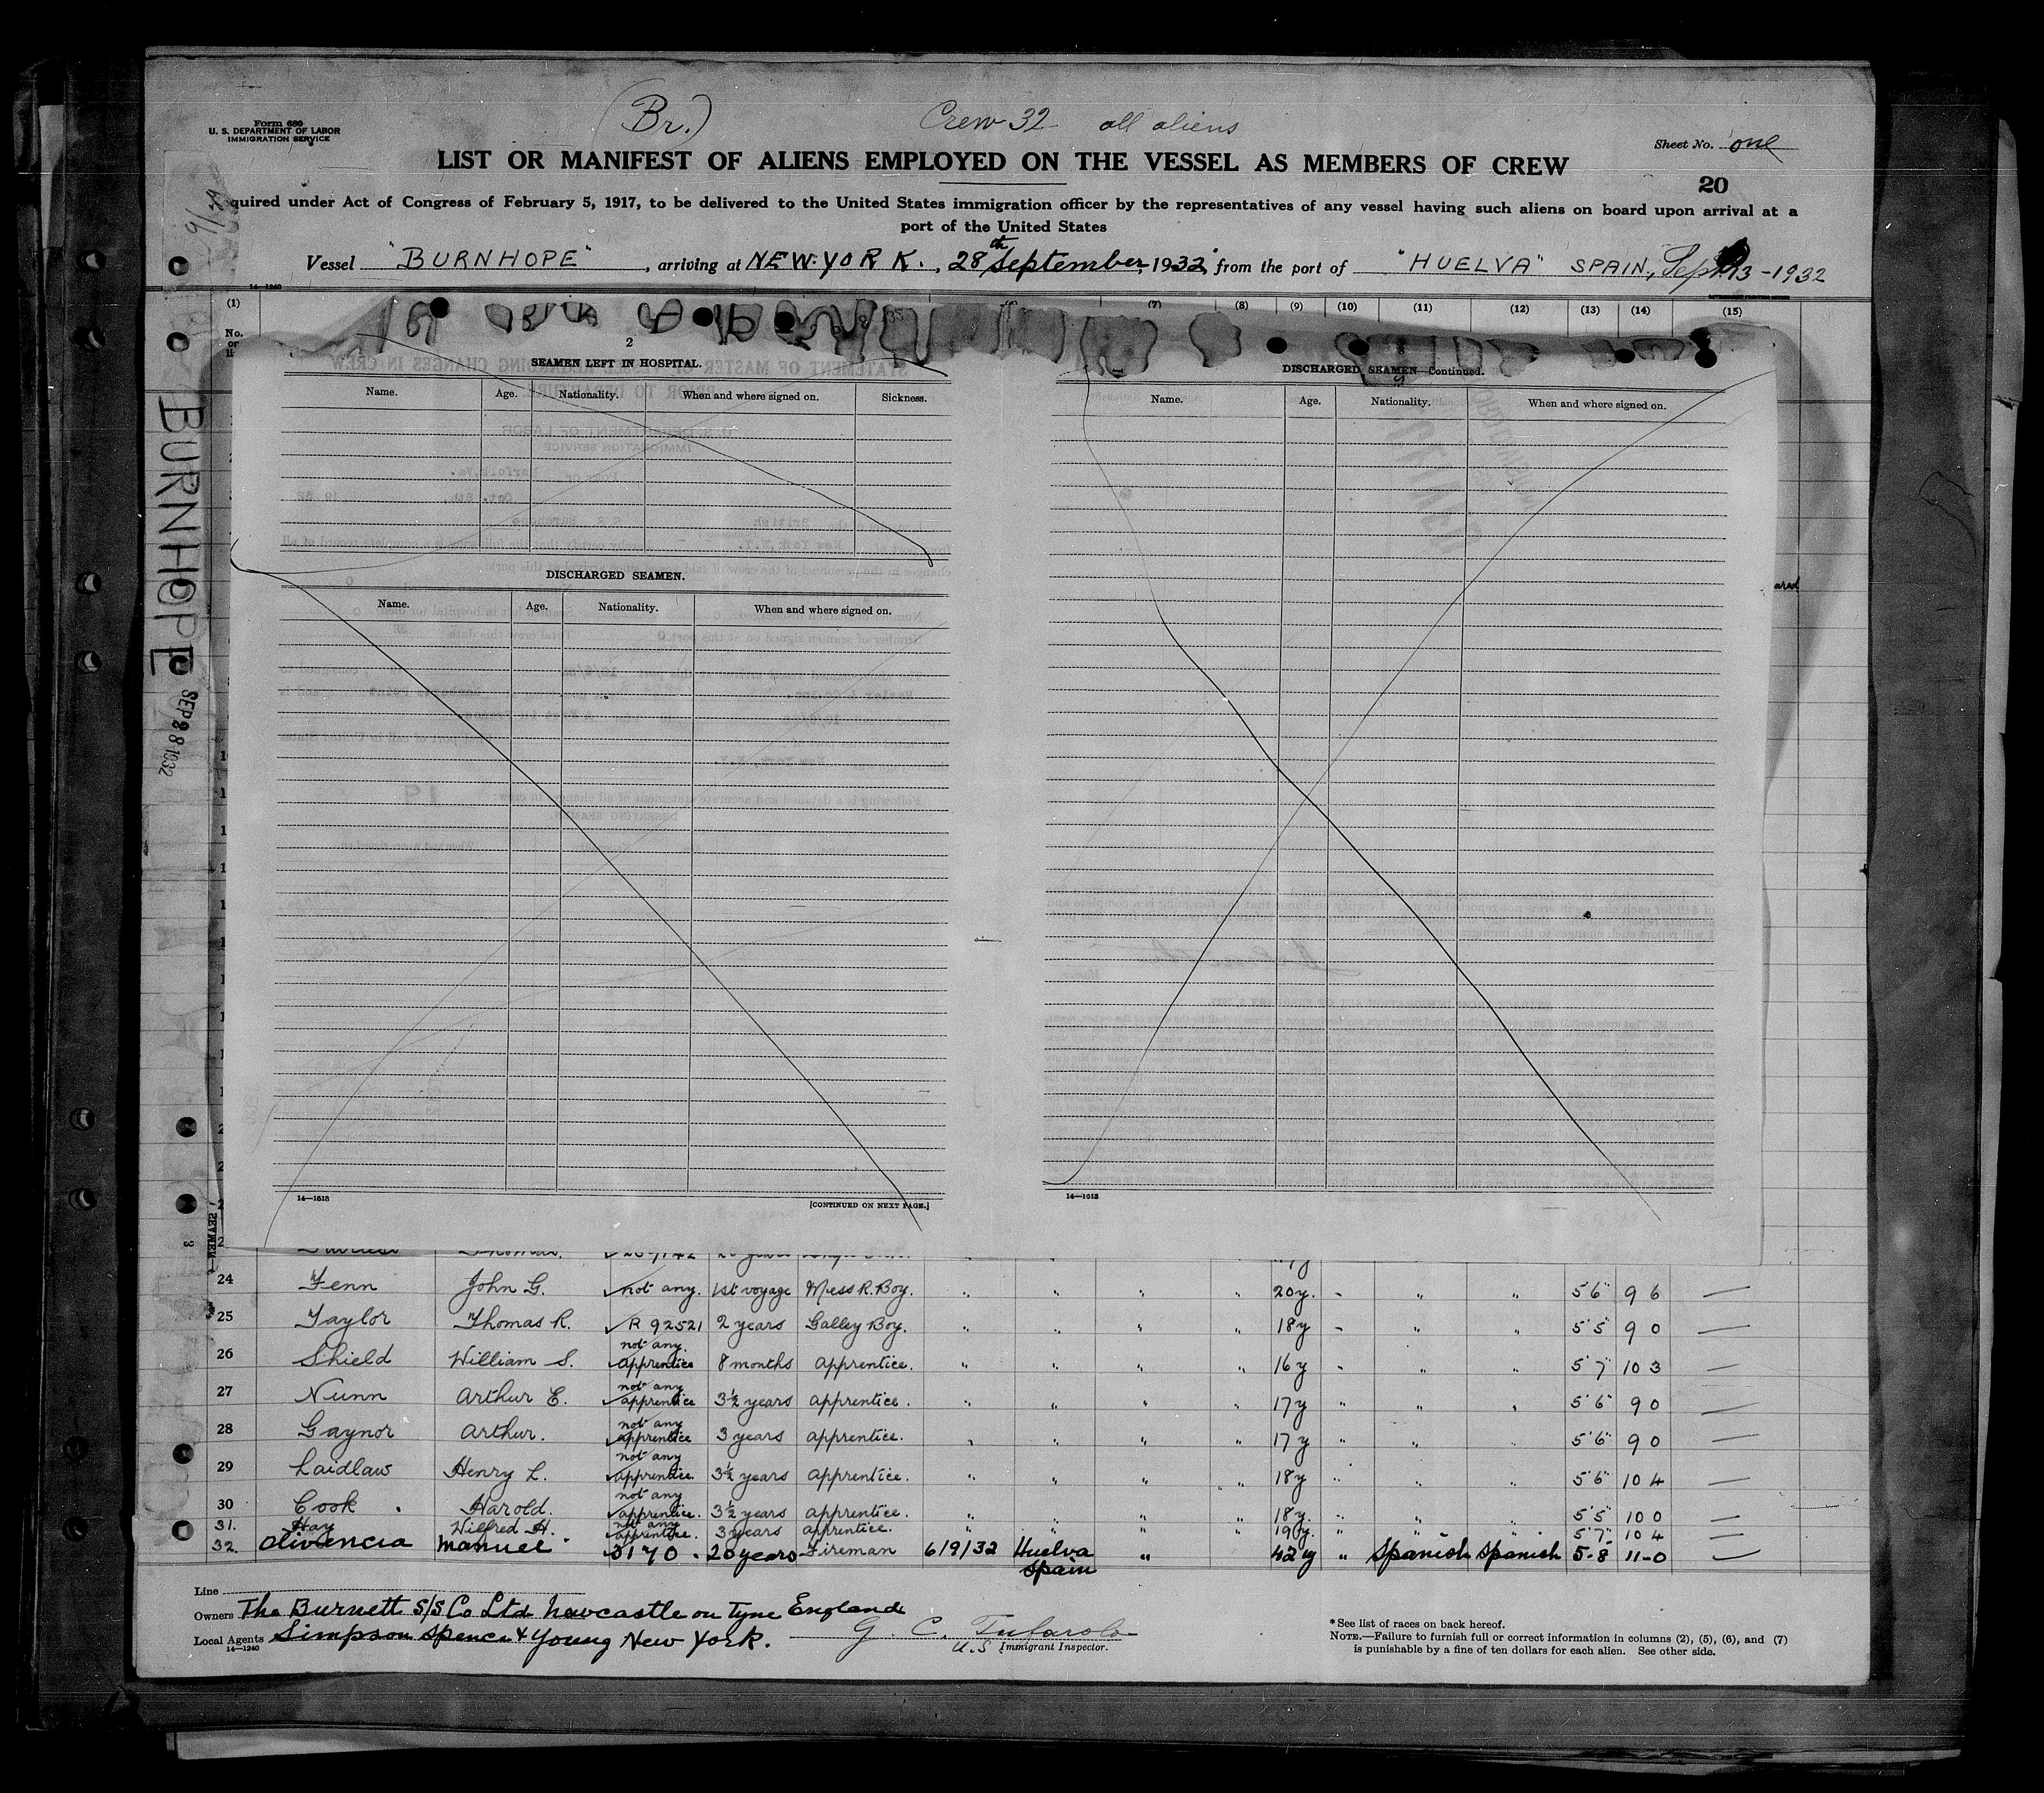 (Br.) Crew 32 all aliens
Form 680
U. S. DEPARTMENT OF LABOR
IMMIGRATION SERVICE
Sheet No. one
LIST OR MANIFEST OF ALIENS EMPLOYED ON THE VESSEL AS MEMBERS OF CREW
20
quired under Act of Congress of February 5, 1917, to be delivered to the United States immigration officer by the representatives of any vessel having such aliens on board upon arrival at a
port of the United States
Vessel "BURNHOPE", arriving at NEW-YORK., 28th September, 1932, from the port of "HUELVA" SPAIN, Sept. 13-1932
14—1240
(1) (7) (8) (9) (10) (11) (12) (13) (14) (15)
No.
on
BURNHOPE
SEP 28 1932
2
SEAMEN LEFT IN HOSPITAL.
Name. Age. Nationality. When and where signed on. Sickness.
DISCHARGED SEAMEN.
Name. Age. Nationality. When and where signed on.
14—1613
[CONTINUED ON NEXT PAGE.]
DISCHARGED SEAMEN—Continued.
Name. Age. Nationality. When and where signed on.
14—1613
24 Fenn John G. not any. 1st voyage Mess R. Boy. " " " " 20y. " " " 5'6" 96 —
25 Taylor Thomas R. R 92521 2 years Galley Boy. " " " " 18y " " " 5'5" 90 —
26 Shield William S. not any. apprentice 8 months apprentice. " " " " 16y " " " 5'7" 103 —
27 Nunn Arthur E. not any apprentice 3½ years apprentice. " " " " 17y " " " 5'6" 90 —
28 Gaynor Arthur. not any apprentice 3 years apprentice. " " " " 17y " " " 5'6" 90 —
29 Laidlaw Henry L. not any apprentice. 3½ years apprentice. " " " " 18y " " " 5'6" 104 —
30 Cook Harold. not any apprentice. 3½ years apprentice. " " " " 18y. " " " 5'5" 100 —
31. Hay Wilfred H. not any apprentice. 3 years apprentice. " " " " 19y. " " " 5'7" 104 —
32. Olivencia Manuel 3170 20 years Fireman 6/9/32 Huelva Spain " 42y " Spanish Spanish 5-8 11-0 —
Line
Owners The Burnett S/S Co Ltd Newcastle on Tyne England
Local Agents Simpson Spence & Young New York.
14—1240
G. C. Tufarolo
U.S Immigrant Inspector.
* See list of races on back hereof.
NOTE.—Failure to furnish full or correct information in columns (2), (5), (6), and (7)
is punishable by a fine of ten dollars for each alien. See other side.